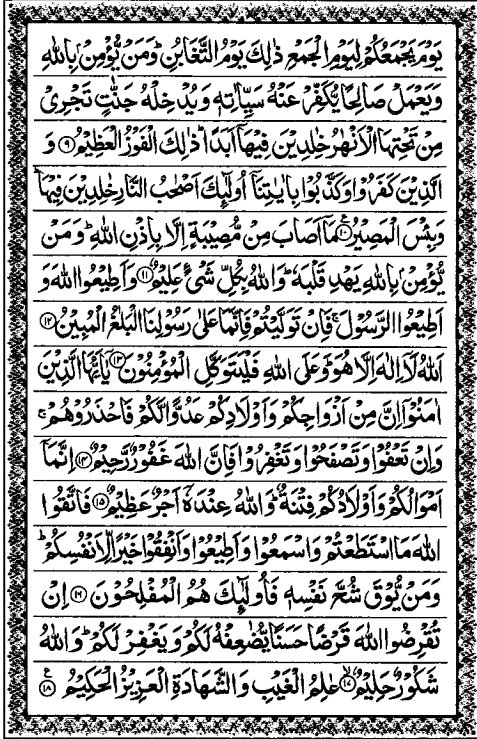 يَوْمَ يَجْمَعُكُمْ لِيَوْمِ الْجَمْعِ ذٰلِكَ يَوْمُ التَّغَابُنِ ؕ وَمَنْ يُّؤْمِنْۢ بِاللّٰهِ
وَيَعْمَلْ صَالِحًا يُّكَفِّرْ عَنْهُ سَيِّاٰتِهٖ وَيُدْخِلْهُ جَنّٰتٍ تَجْرِىْ
مِنْ تَحْتِهَا الْاَنْهٰرُ خٰلِدِيْنَ فِيْهَاۤ اَبَدًا ؕ ذٰلِكَ الْفَوْزُ الْعَظِيْمُ ۹ وَ
الَّذِيْنَ كَفَرُوْا وَكَذَّبُوْا بِاٰيٰتِنَاۤ اُولٰٓئِكَ اَصْحٰبُ النَّارِ خٰلِدِيْنَ فِيْهَا ؕ
وَبِئْسَ الْمَصِيْرُ ۱۰ ع مَاۤ اَصَابَ مِنْ مُّصِيْبَةٍ اِلَّا بِاِذْنِ اللّٰهِ ؕ وَمَنْ
يُّؤْمِنْۢ بِاللّٰهِ يَهْدِ قَلْبَهٗ ؕ وَاللّٰهُ بِكُلِّ شَىْءٍ عَلِيْمٌ ۱۱ وَاَطِيْعُوا اللّٰهَ وَ
اَطِيْعُوا الرَّسُوْلَ ۚ فَاِنْ تَوَلَّيْتُمْ فَاِنَّمَا عَلٰى رَسُوْلِنَا الْبَلٰغُ الْمُبِيْنُ ۱۲
اَللّٰهُ لَاۤ اِلٰهَ اِلَّا هُوَ ؕ وَعَلَى اللّٰهِ فَلْيَتَوَكَّلِ الْمُؤْمِنُوْنَ ۱۳ يٰۤاَيُّهَا الَّذِيْنَ
اٰمَنُوْۤا اِنَّ مِنْ اَزْوَاجِكُمْ وَاَوْلَادِكُمْ عَدُوًّا لَّكُمْ فَاحْذَرُوْهُمْ ۚ
وَاِنْ تَعْفُوْا وَتَصْفَحُوْا وَتَغْفِرُوْا فَاِنَّ اللّٰهَ غَفُوْرٌ رَّحِيْمٌ ۱۴ اِنَّمَاۤ
اَمْوَالُكُمْ وَاَوْلَادُكُمْ فِتْنَةٌ ؕ وَاللّٰهُ عِنْدَهٗۤ اَجْرٌ عَظِيْمٌ ۱۵ فَاتَّقُوا
اللّٰهَ مَا اسْتَطَعْتُمْ وَاسْمَعُوْا وَاَطِيْعُوْا وَاَنْفِقُوْا خَيْرًا لِّاَنْفُسِكُمْ ؕ
وَمَنْ يُّوْقَ شُحَّ نَفْسِهٖ فَاُولٰٓئِكَ هُمُ الْمُفْلِحُوْنَ ۱۶ اِنْ
تُقْرِضُوا اللّٰهَ قَرْضًا حَسَنًا يُّضٰعِفْهُ لَكُمْ وَيَغْفِرْ لَكُمْ ؕ وَاللّٰهُ
شَكُوْرٌ حَلِيْمٌ ۱۷ۙ عٰلِمُ الْغَيْبِ وَالشَّهَادَةِ الْعَزِيْزُ الْحَكِيْمُ ۱۸ ع